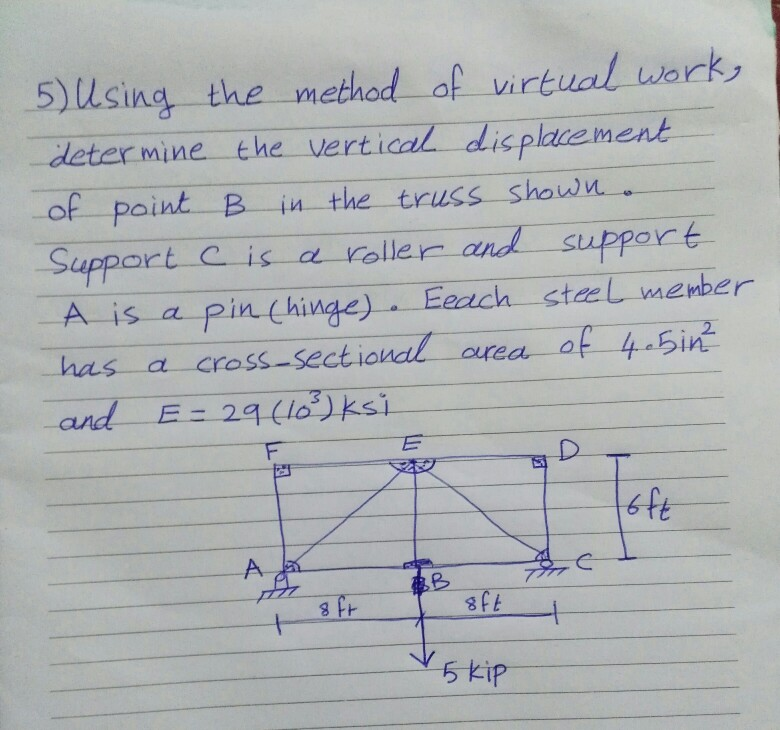 5) Using the method of virtual work,
determine the vertical displacement
of point B in the truss shown.
Support C is a roller and support
A is a pin (hinge). Eeach steel member
has a cross-sectional area of 4.5in²
and E = 29(10³) ksi
F E D
6ft
A B C
8ft 8ft
5 kip